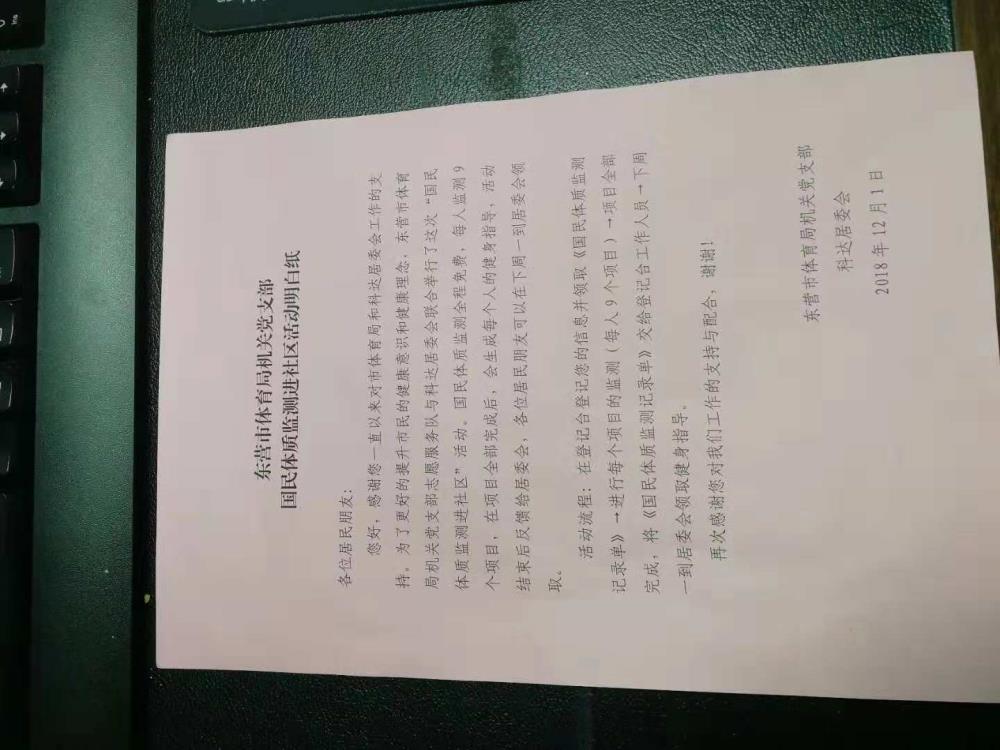 东营市体育局机关党支部
国民体质监测进社区活动明白纸
各位居民朋友：
您好，感谢您一直以来对市体育局和科达居委会工作的支
持。为了更好的提升市民的健康意识和健康理念，东营市体育
局机关党支部志愿服务队与科达居委会联合举行了这次“国民
体质监测进社区”活动。国民体质监测全程免费，每人监测9
个项目，在项目全部完成后，会生成每个人的健身指导，活动
结束后反馈给居委会，各位居民朋友可以在下周一到居委会领
取。
活动流程：在登记台登记您的信息并领取《国民体质监测
记录单》→进行每个项目的监测（每人9个项目）→项目全部
完成，将《国民体质监测记录单》交给登记台工作人员→下周
一到居委会领取健身指导。
再次感谢您对我们工作的支持与配合，谢谢！
东营市体育局机关党支部
科达居委会
2018年12月1日
Ins